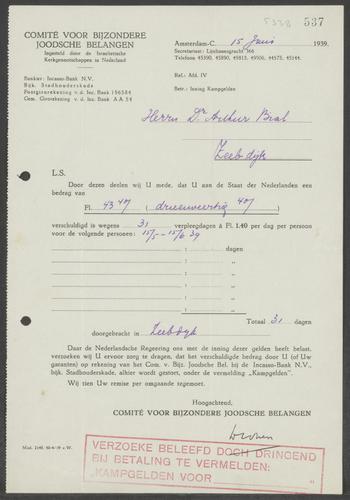 5338 537
COMITÉ VOOR BIJZONDERE
JOODSCHE BELANGEN
Ingesteld door de Israëlietische
Kerkgenootschappen in Nederland
Bankier: Incasso-Bank N.V.
Bijk. Stadhouderskade
Postgirorekening v. d. Inc. Bank 156584
Gem. Girorekening v. d. Inc. Bank A A 54
Amsterdam-C. 15 Juni 1939.
Secretariaat: Lijnbaansgracht 366
Telefoons 45390, 45890, 48813, 49006, 44575, 45144.
Ref.: Afd. IV
Betr.: Inning Kampgelden
Herrn Dr Arthur
Zeeb dyk
L.S.
Door dezen deelen wij U mede, dat U aan de Staat der Nederlanden een
bedrag van
Fl. 43 40/ (drieenveertig 40/
verschuldigd is wegens 31 verpleegdagen à Fl. 1.40 per dag per persoon
voor de volgende personen: 15/5 - 15/6 39
: dagen
: „
: „
: „
: „
: „
Totaal 31 dagen
doorgebracht in Zeebdyk
Daar de Nederlandsche Regeering ons met de inning dezer gelden heeft belast,
verzoeken wij U ervoor zorg te dragen, dat het verschuldigde bedrag door U (of Uw
garanten) op rekening van het Com. v. Bijz. Joodsche Bel. bij de Incasso-Bank N.V.,
bijk. Stadhouderskade, alhier wordt gestort, onder de vermelding „Kampgelden".
Wij zien Uw remise per omgaande tegemoet.
Hoogachtend,
COMITÉ VOOR BIJZONDERE JOODSCHE BELANGEN
VERZOEKE BELEEFD DOCH DRINGEND
BIJ BETALING TE VERMELDEN:
"KAMPGELDEN VOOR